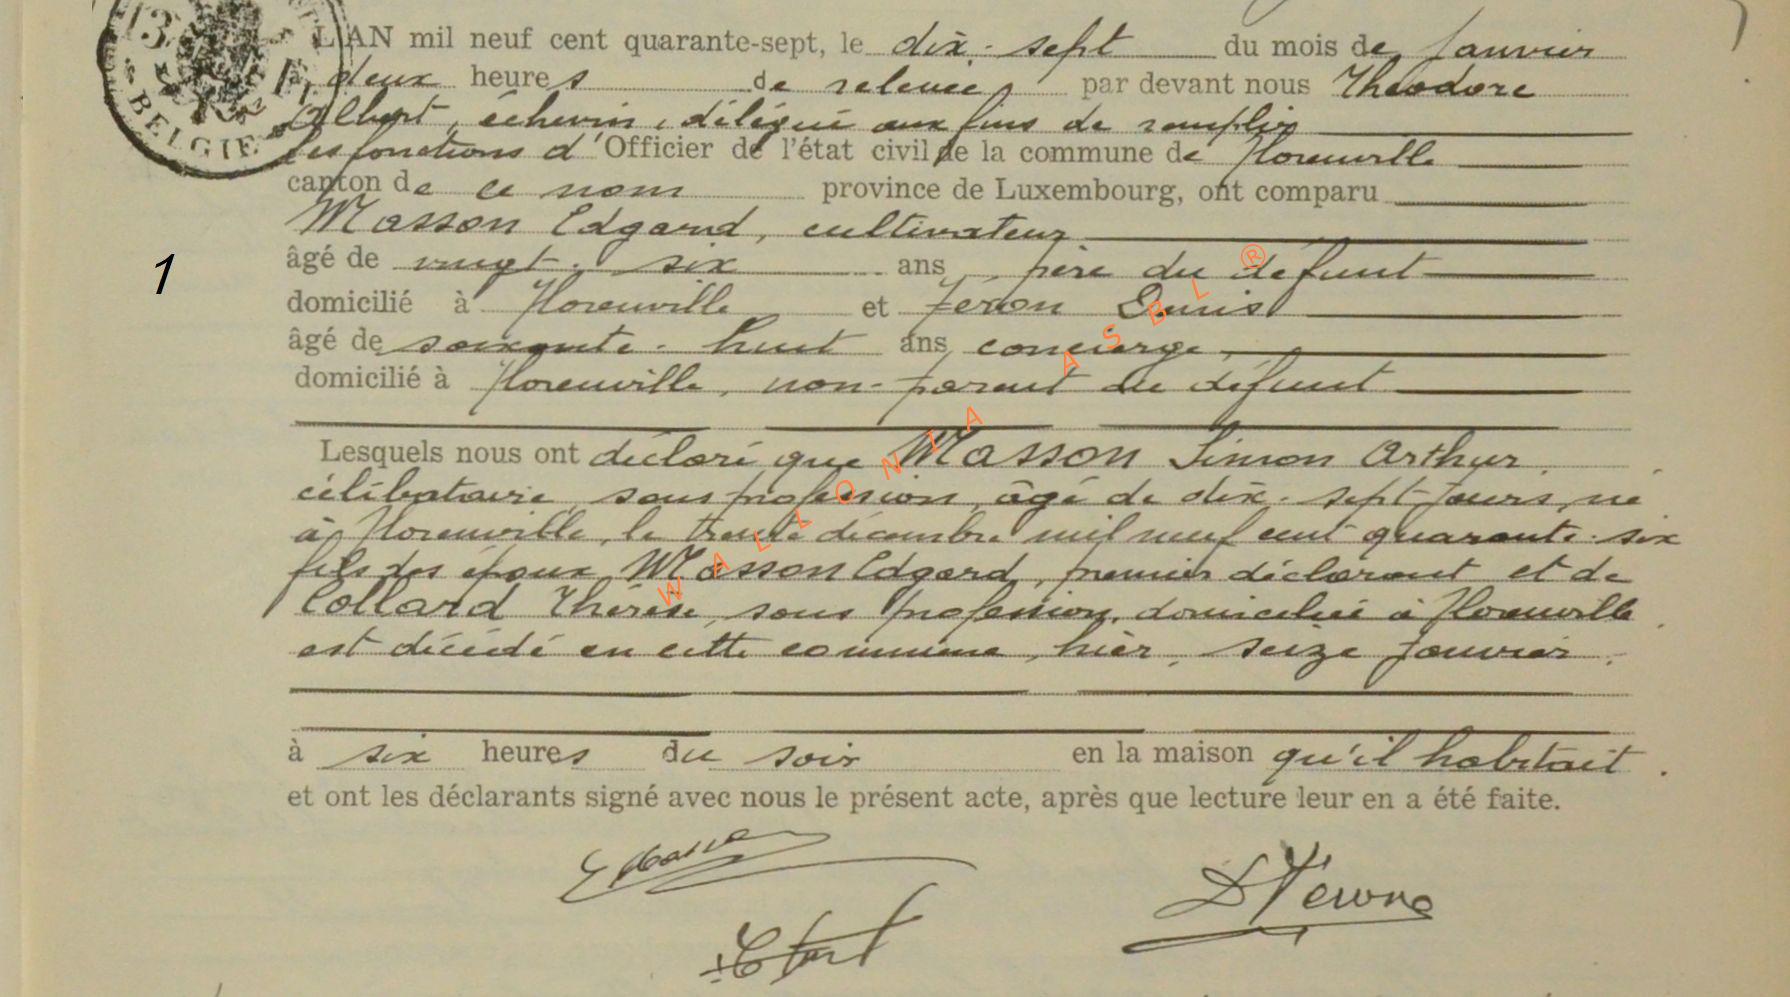 L'AN mil neuf cent quarante-sept, le dix-sept du mois de janvier
à deux heures de relevée par devant nous Théodore
Albert, échevin, délégué aux fins de remplir
les fonctions d'Officier de l'état civil de la commune de Florenville
canton de ce nom province de Luxembourg, ont comparu
Masson Edgard, cultivateur
1
âgé de vingt-six ans, père du défunt
domicilié à Florenville et Féron Denis
âgé de soixante-huit ans, concierge,
domicilié à Florenville, non-parent du défunt
Lesquels nous ont déclaré que Masson Simon Arthur,
célibataire, sans profession, âgé de dix-sept jours, né
à Florenville, le trente décembre mil neuf cent quarante-six
fils des époux Masson Edgard, premier déclarant et de
Collard Thérèse, sans profession, domiciliés à Florenville
est décédé en cette commune, hier, seize janvier,
à six heures du soir en la maison qu'il habitait.
et ont les déclarants signé avec nous le présent acte, après que lecture leur en a été faite.
E Masson
BELGIE
WALLONIA ASBL ®